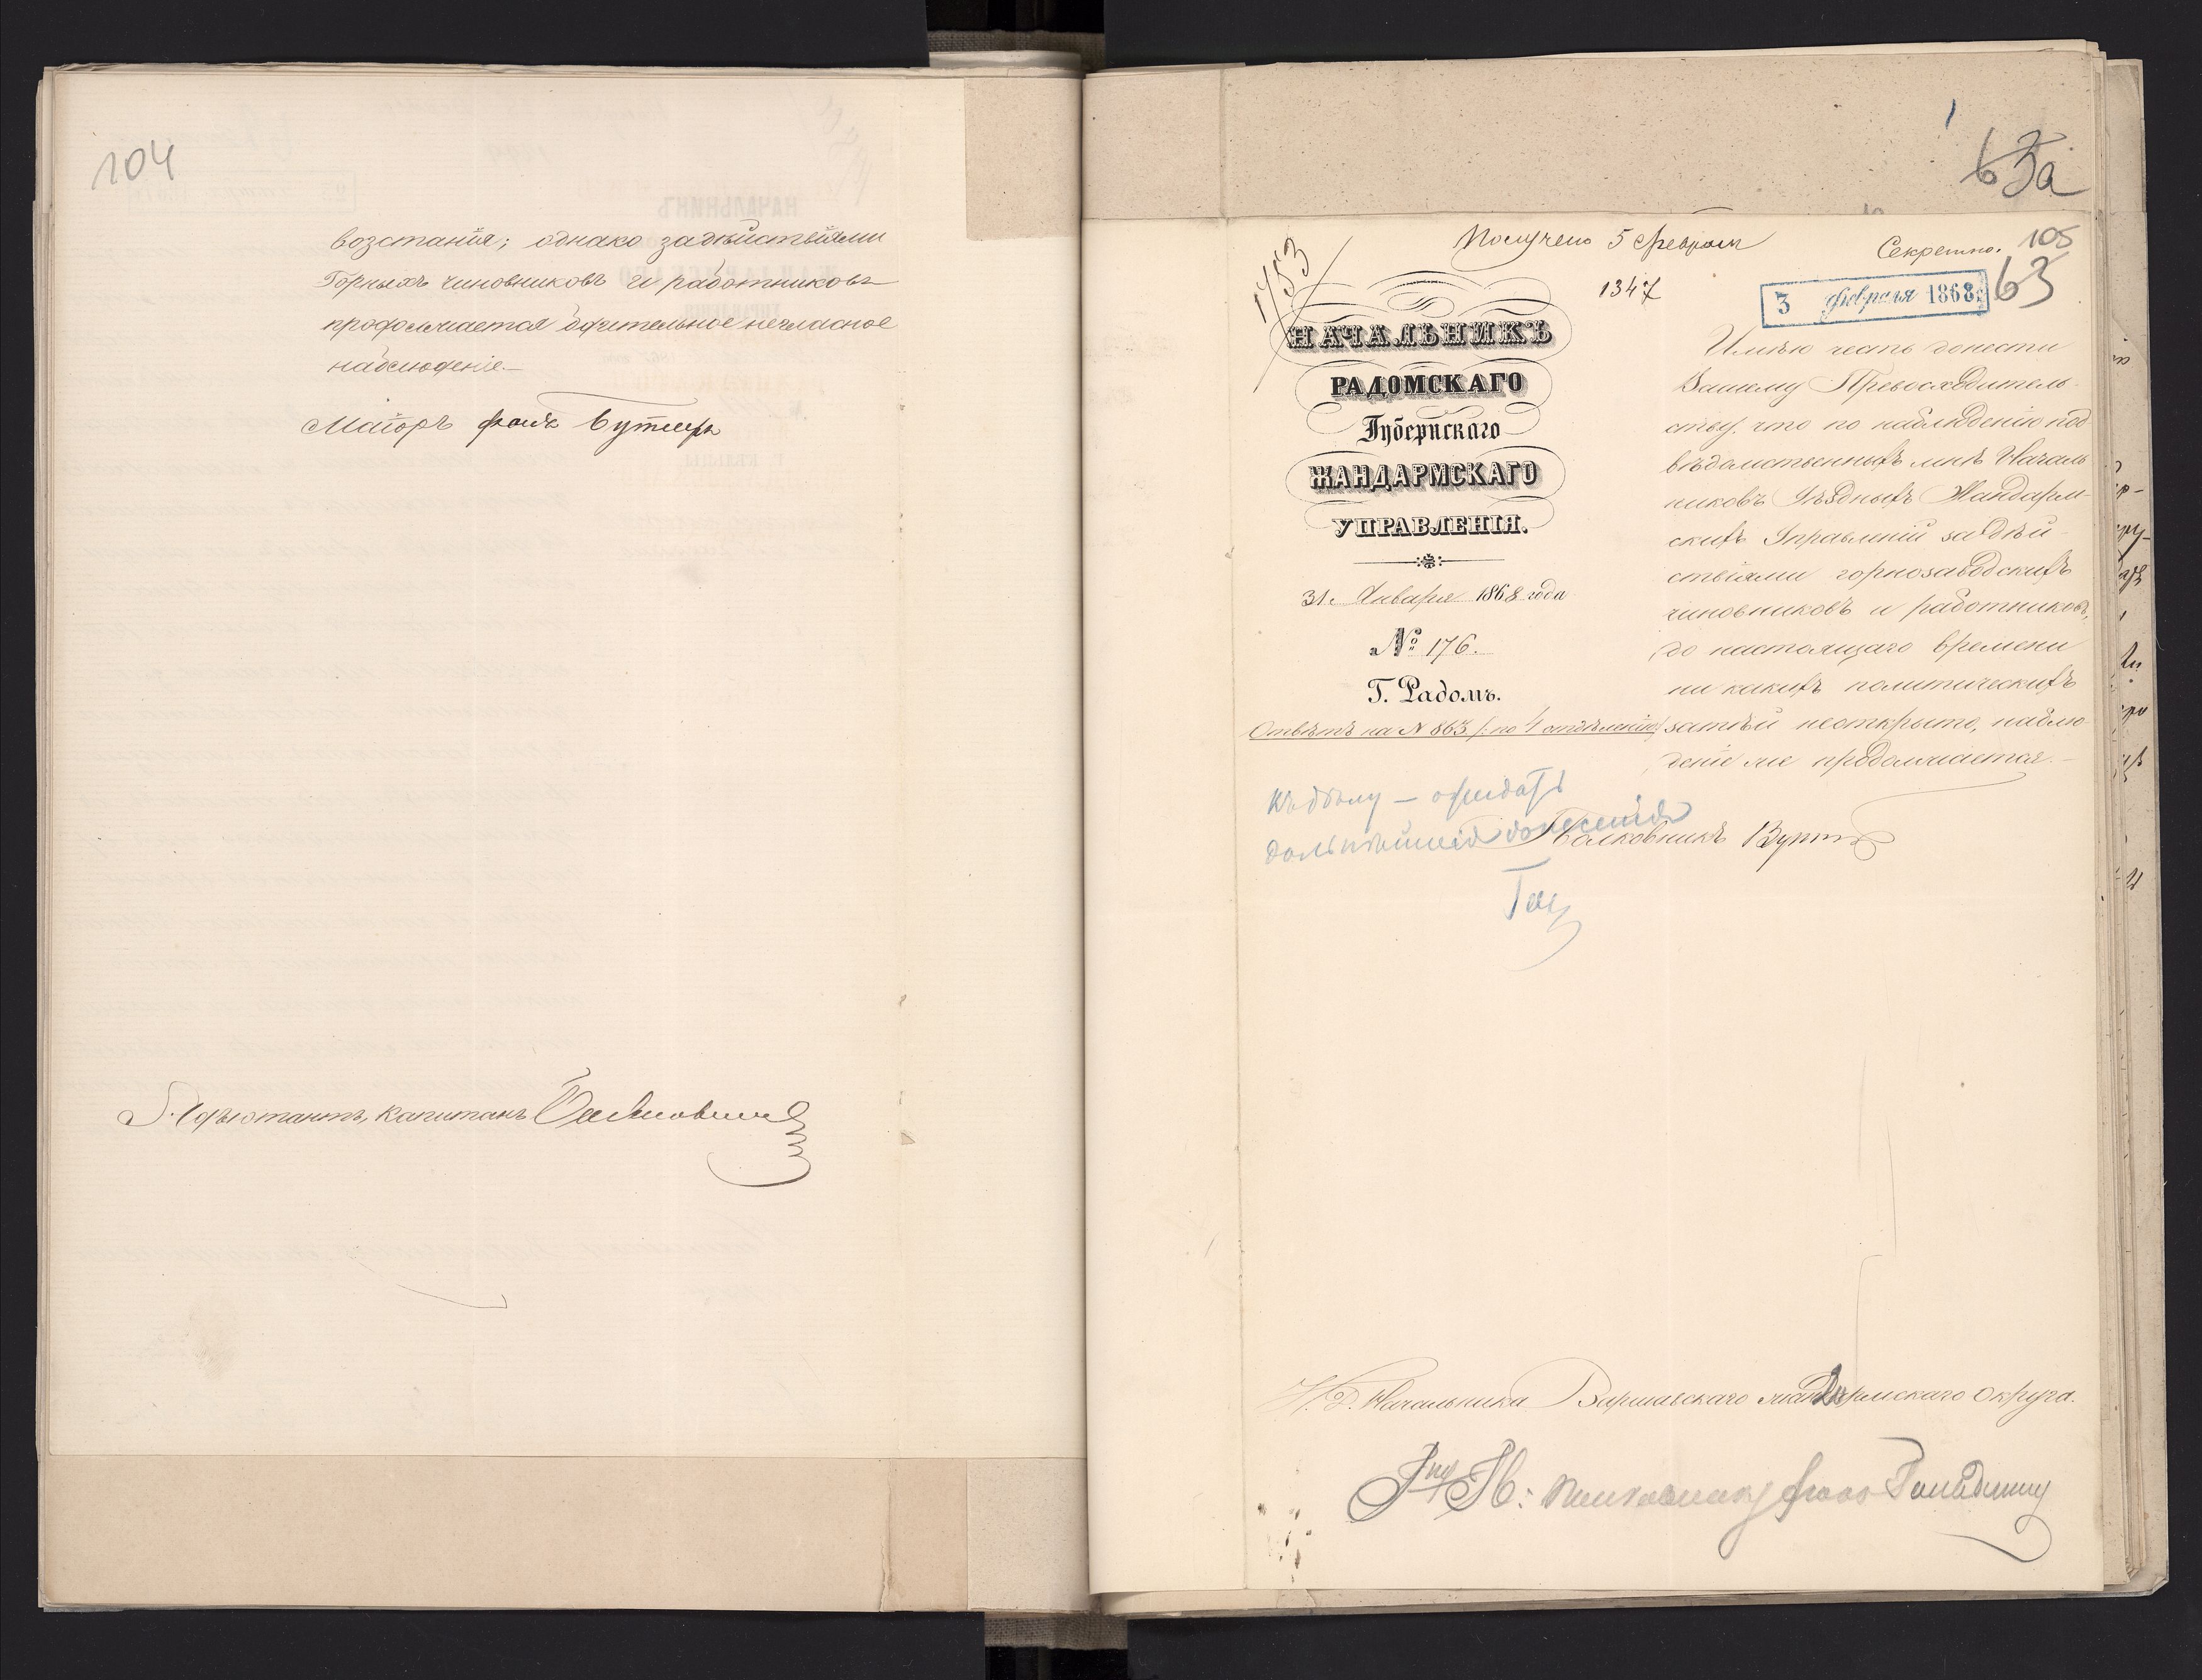 104
возстанія; однако задѣйствіями
Горныхъ чиновниковъ и работниковъ
продолжается бдительное негласное
наблюденіе.—
Маіоръ фонъ Бутлеръ
Адъютантъ, Капитанъ
63а
1453
Получено 5 Февраля
Секретно.
105
1347
3 февраля 1868
63
НАЧАЛЬНИКЪ
РАДОМСКАГО
Губернскаго
ЖАНДАРМСКАГО
УПРАВЛЕНІЯ.
31. Января 1868 года
№ 176.
Г. Радомъ.
Отвѣтъ на N 863 /: по 4 отдѣленію/
Имѣю честь донести
Вашему Превосходитель-
ству, что по наблюденію под
вѣдомственныхъ мнѣ Началь
никовъ Уѣздныхъ Жандарм-
скихъ Управленій за дѣй
ствіями горнозаводскихъ
чиновниковъ и работниковъ,
до настоящаго времени
ни какихъ политическихъ
затѣй неоткрыто, наблю
деніе же продолжается.—
Полковникъ Вуртъ
Къ дѣлу — ожидать
дальнѣйшія донесенія
И. Д. Начальника Варшавскаго жандармскаго округа.